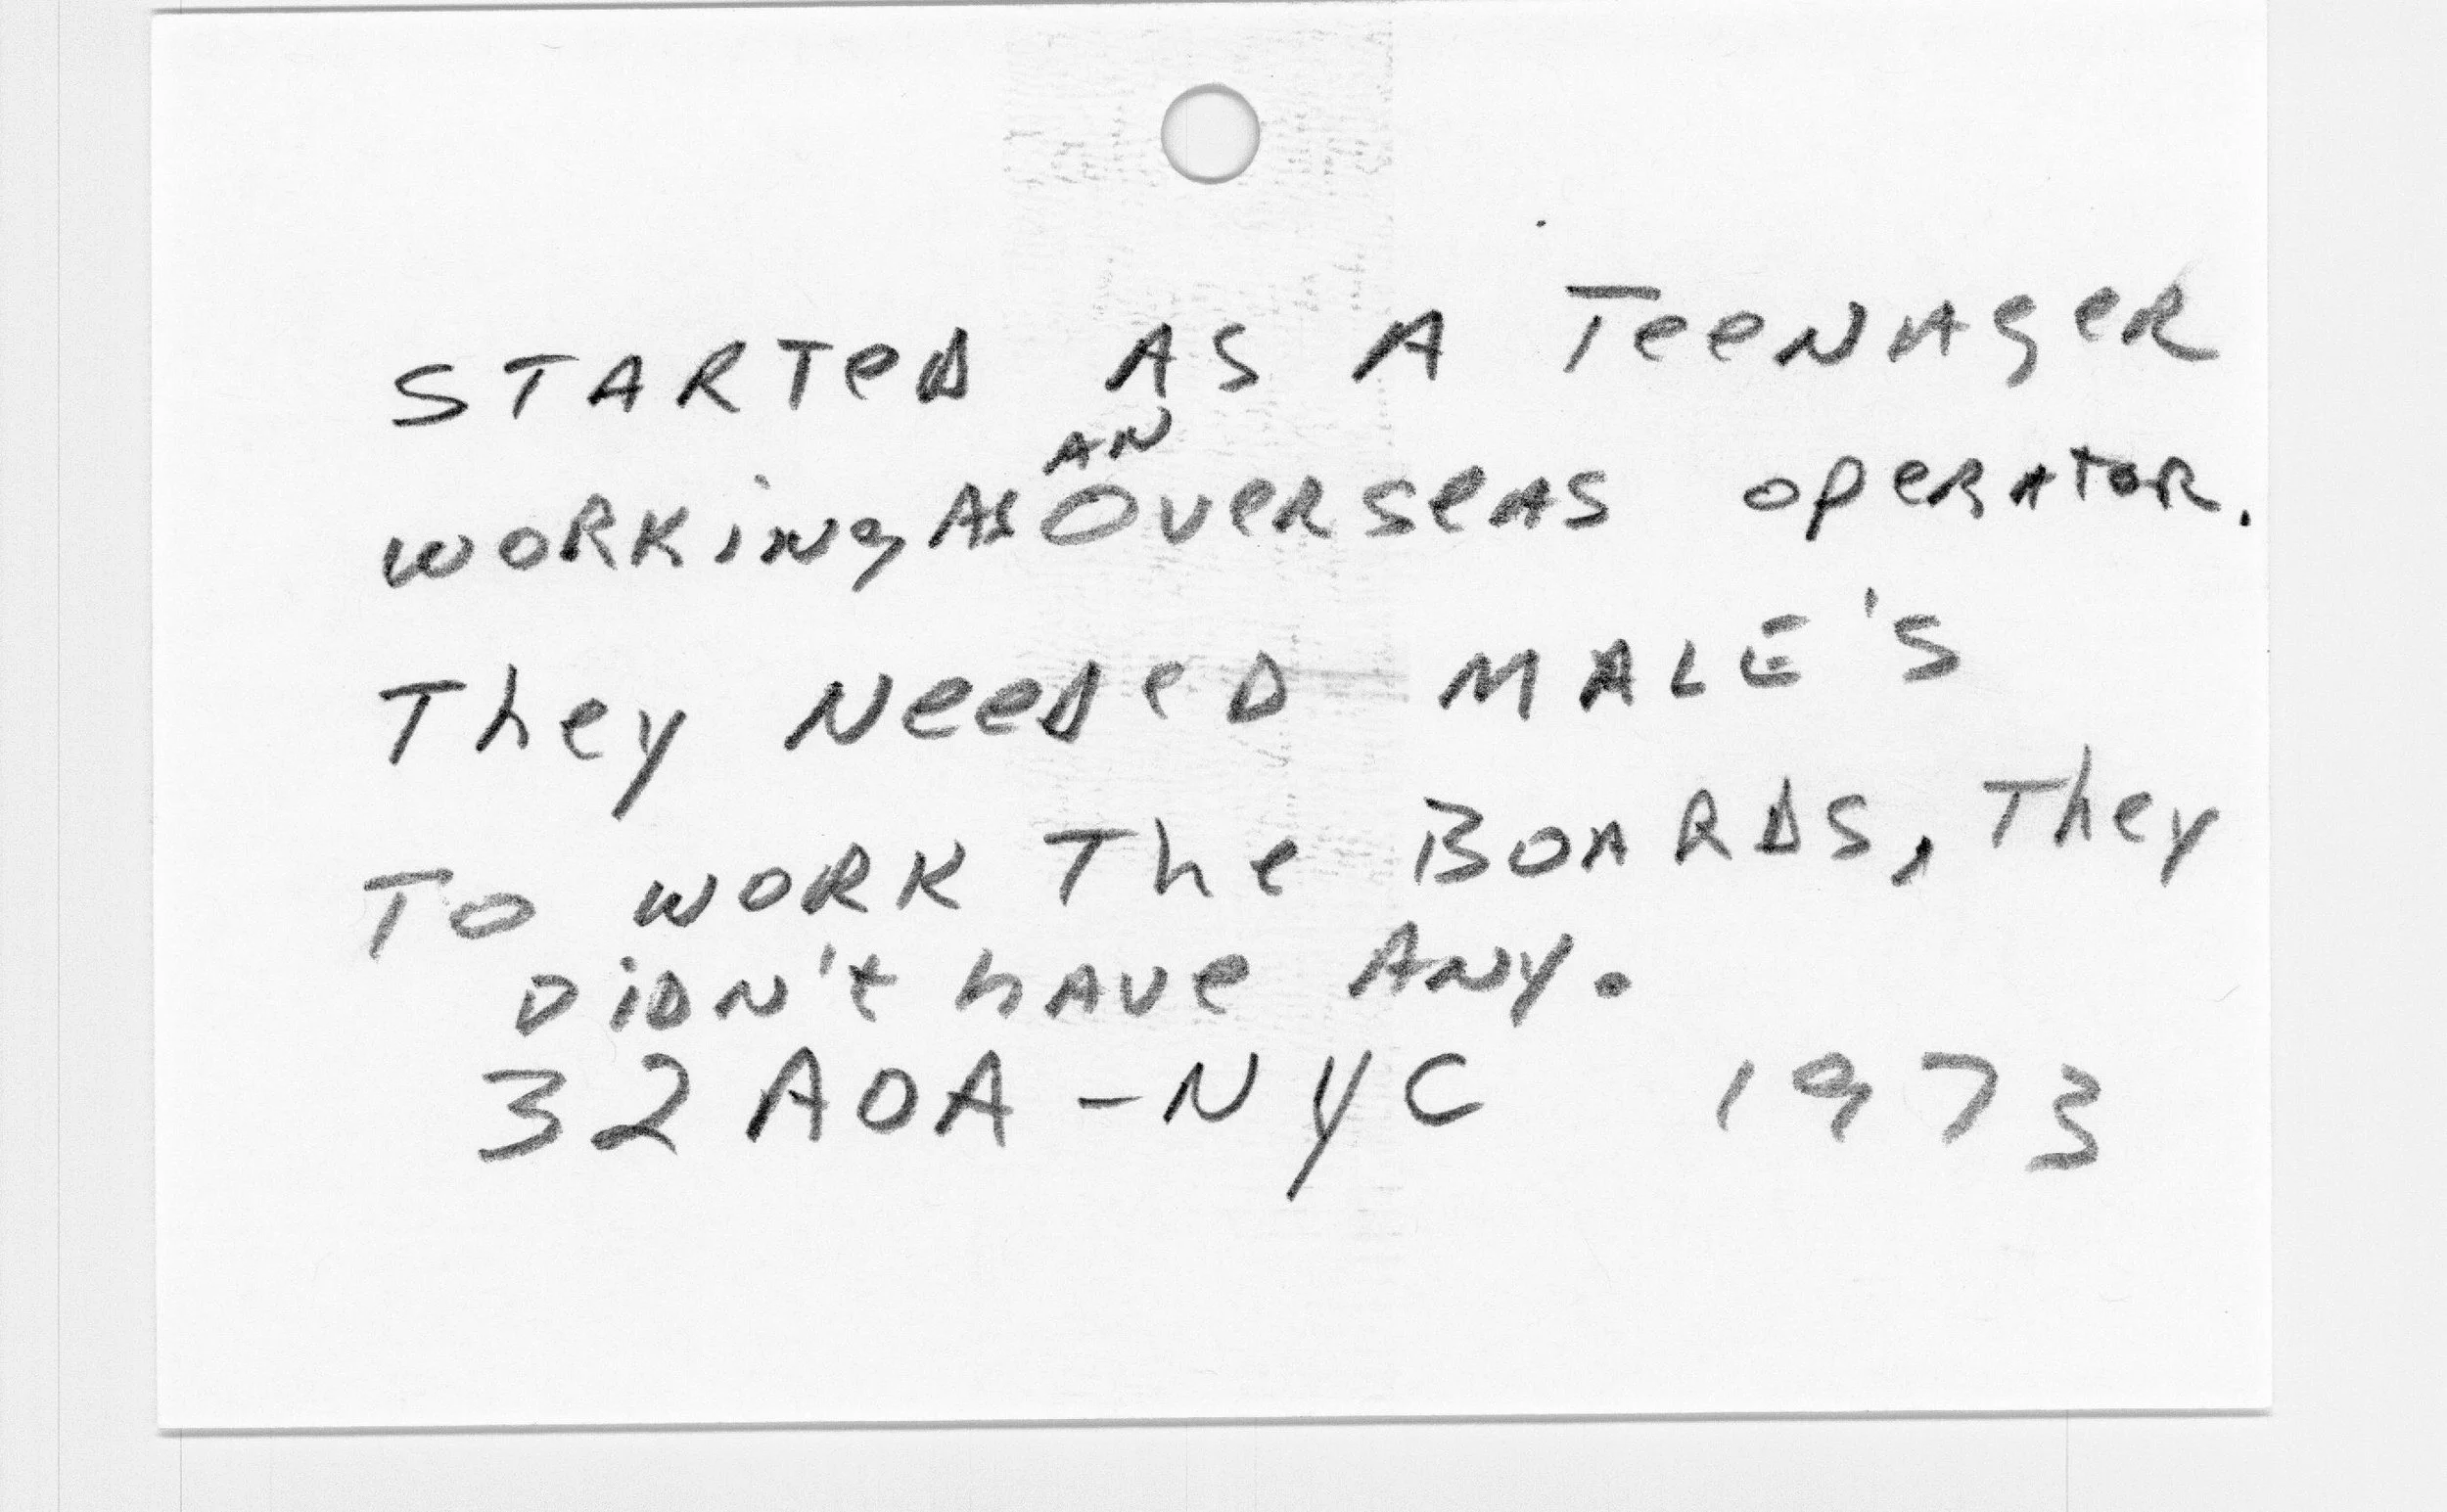 STARTeD AS A TeeNAgeR
WORKiNg AS AN OVeRSeAS OPeRATOR.
They NeeDeD MALE'S
TO WORK The BOARDS, They
DiDN't hAVe ANY.
32 AOA - NYC 1973